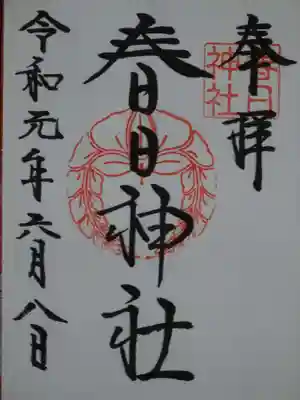 奉拝
春日神社
春日神社
令和元年六月八日